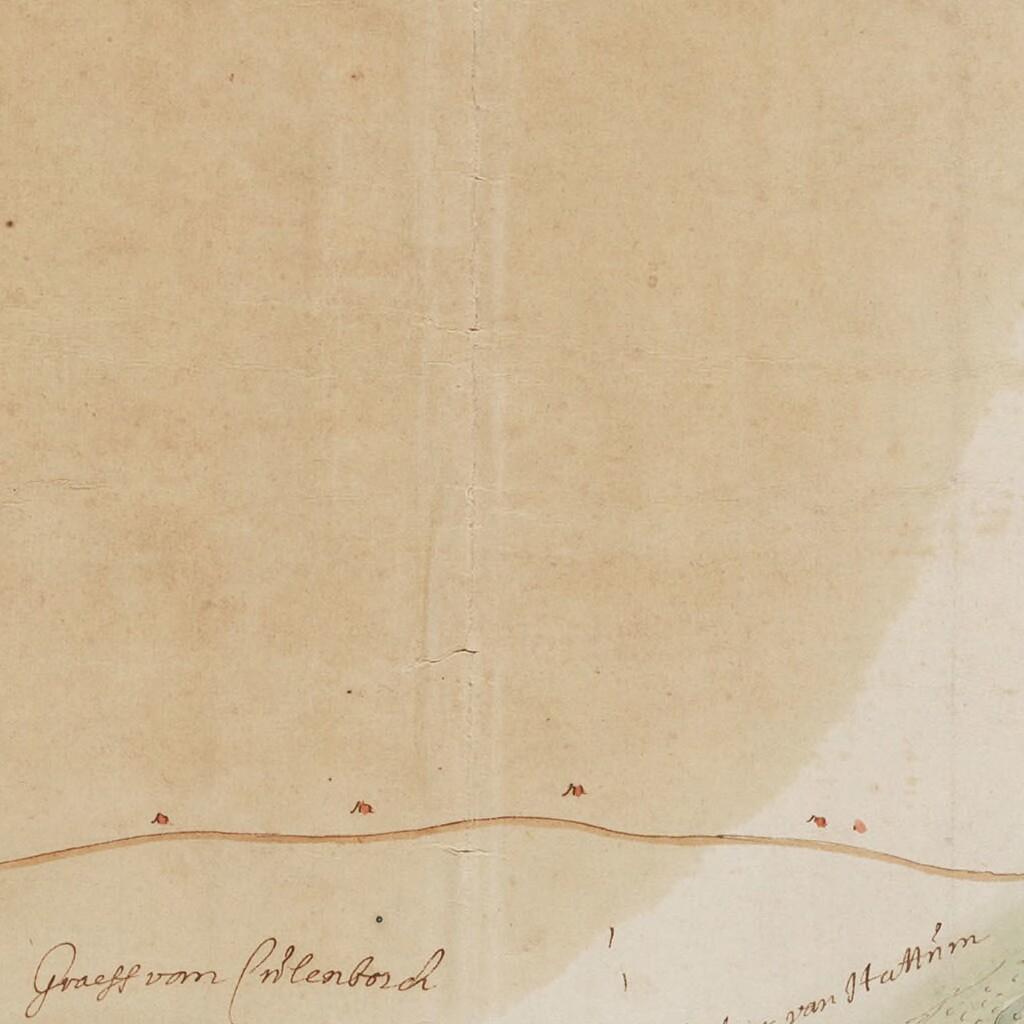 Graeff vom Cúlenborch
van Hattúm